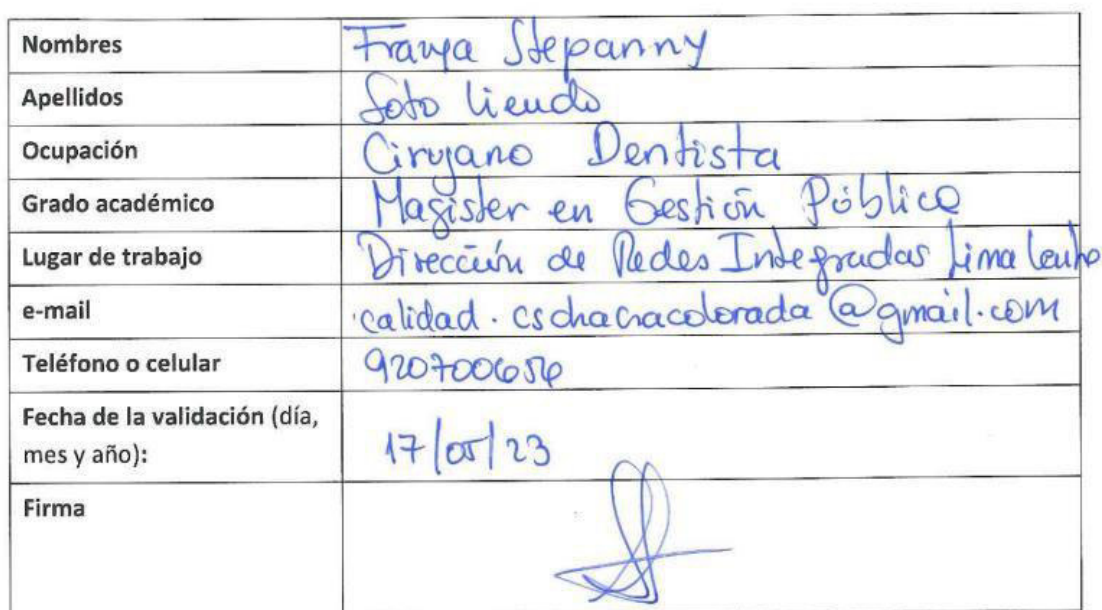 Nombres Franya Stepanny
Apellidos Soto Liendo
Ocupación Cirujano Dentista
Grado académico Magister en Gestión Pública
Lugar de trabajo Dirección de Redes Integradas Lima Centro
e-mail calidad.cschacracolorada@gmail.com
Teléfono o celular
Fecha de la validación (día,
mes y año): 17/05/23
Firma